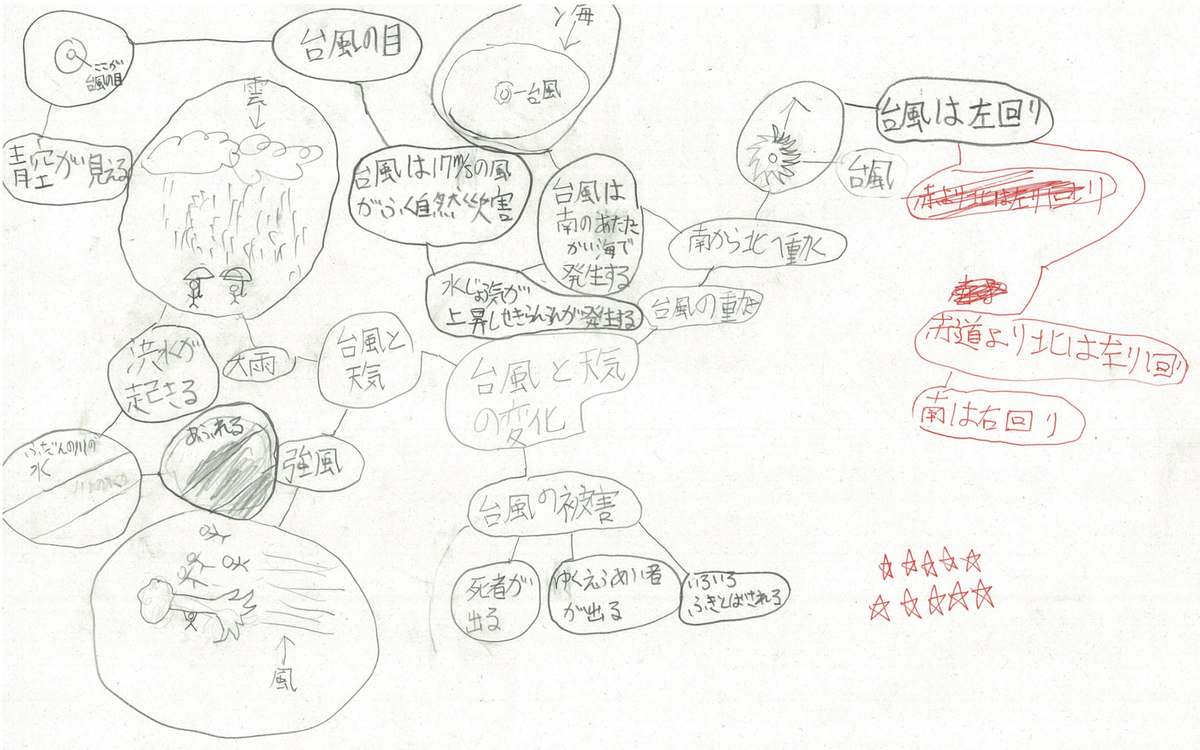 台風の目
ここが
台風の目
青空が見える
雲
海
台風
台風は17m/sの風
がふく自然災害
台風は
南のあたた
かい海で
発生する
水じょう気が
上昇しせきらんうんが発生する
台風は左回り
台風
南から北へ動く
台風の動き
赤道より北は左り回り
南は右回り
台風と天気
の変化
台風と
天気
大雨
洪水が
起きる
あふれる
ふだんの川の
水
強風
風
台風の被害
死者が
出る
ゆくえふめい者
が出る
いろいろ
ふきとばされる